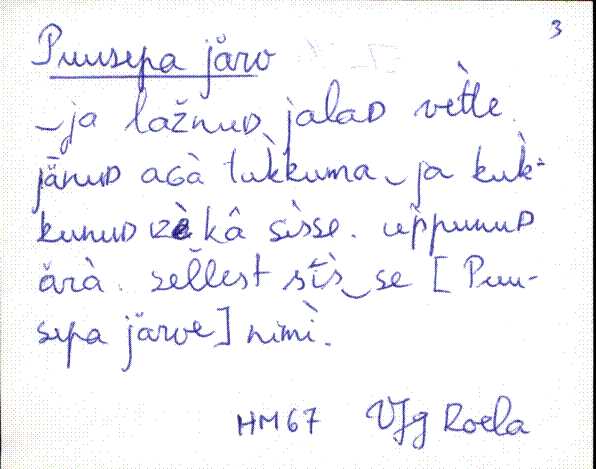 3
Puusepa järv
‿ja lažnuᴅ jalaᴅ vètle.
jänuᴅ aɢà tùkkuma‿ja kuk̀-
kunuᴅ kâ sìsse. uppunuᴅ
ärà. sellest sìs‿se [Puu-
sepa järve] nimì.
HM67 VJg Roela